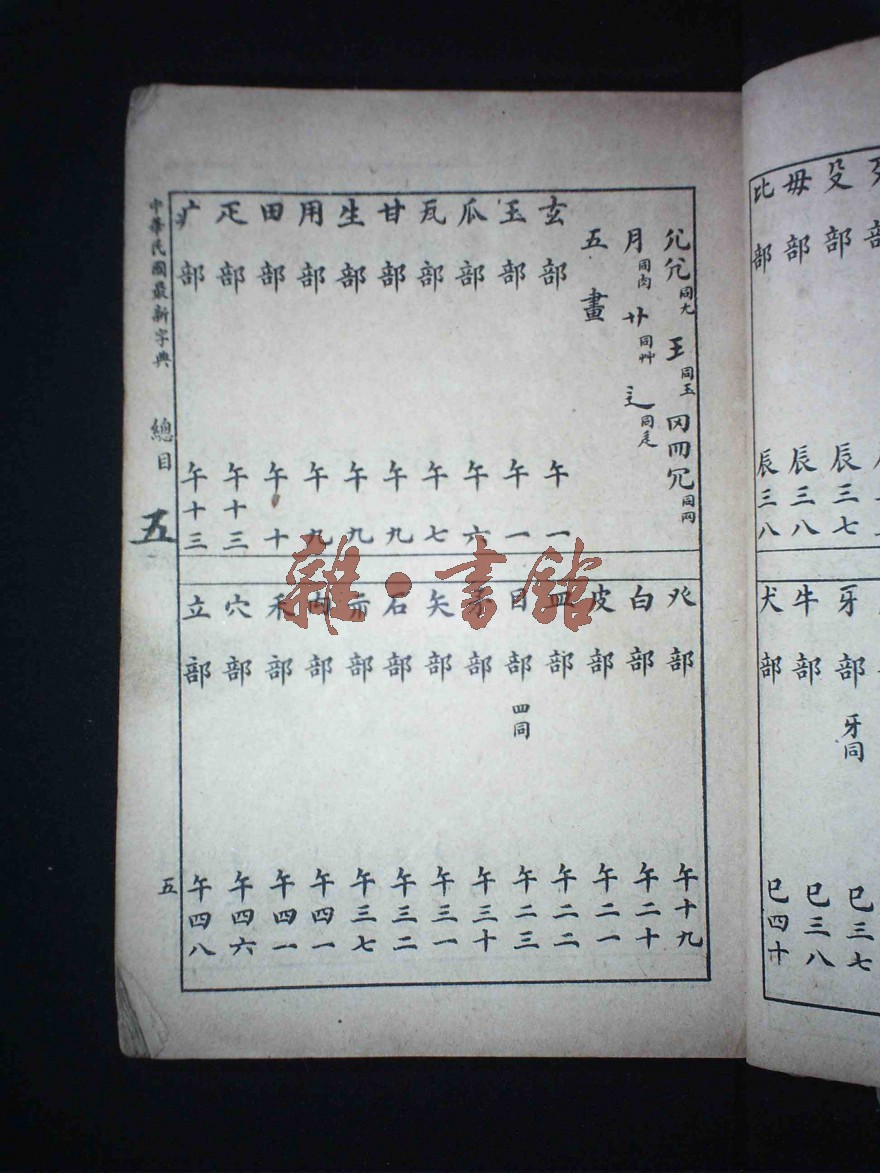 兀尣同尢 王同玉 𦉪罒冗同网
月同肉 廾同艸 辶同辵
五畫
玄部 午一
玉部 午一
瓜部 午六
瓦部 午七
甘部 午九
生部 午九
用部 午九
田部 午十
疋部 午十三
疒部 午十三
癶部 午十九
白部 午二十
皮部 午二一
皿部 午二二
目部 四同 午二三
矛部 午三十
矢部 午三一
石部 午三二
示部 午三七
禸部 午四一
禾部 午四一
穴部 午四六
立部 午四八
中華民國最新字典 總目 五
五
殳部 辰三七
毋部 辰三八
比部 辰三八
牙部 牙同 巳三七
牛部 巳三八
犬部 巳四十
雜·書館